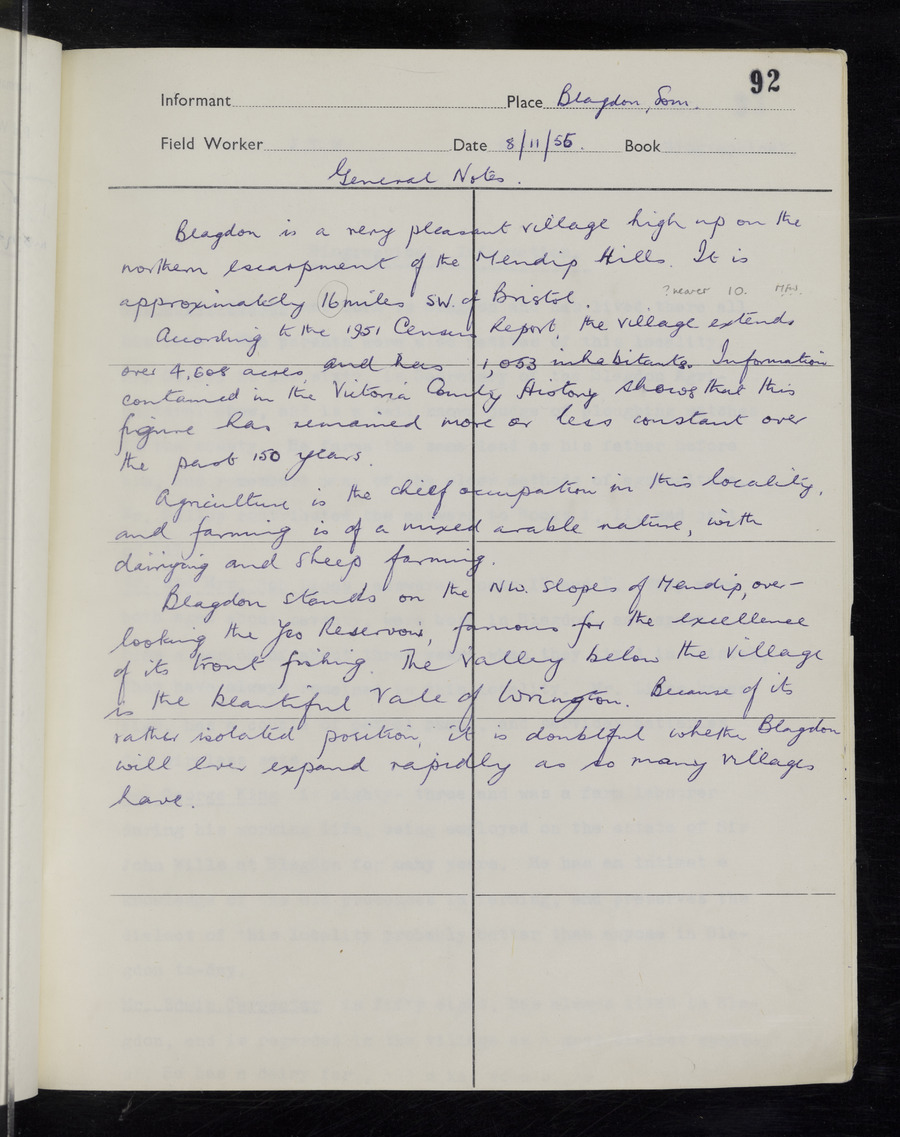 92
Informant Place Blagdon, Som.
Field Worker Date 8/11/56. Book
General Notes.
Blagdon is a very pleasant village high up on the
northern escarpment of the Mendip Hills. It is
approximately 16 miles SW. of Bristol. ? nearer 10.
According to the 1951 Census Report the village extends
over 4,608 acres and has 1,053 inhabitants. Information
contained in the Victoria County History shows that this
figure has remained more or less constant over
the past 150 years.
Agriculture is the chief occupation in this locality,
and farming is of a mixed arable nature, with
dairying and sheep farming.
Blagdon stands on the NW. slopes of Mendip, over-
looking the Yeo Reservoir, famous for the excellence
of its trout fishing. The valley below the village
is the beautiful Vale of Wrington. Because of its
rather isolated position, it is doubtful whether Blagdon
will ever expand rapidly as so many villages
have.